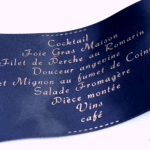 Cocktail
Foie Gras Maison
Filet de Perche au Romarin
Douceur angevine
et Mignon au fumet de Coin
Salade Fromagère
Pièce montée
Vins
café